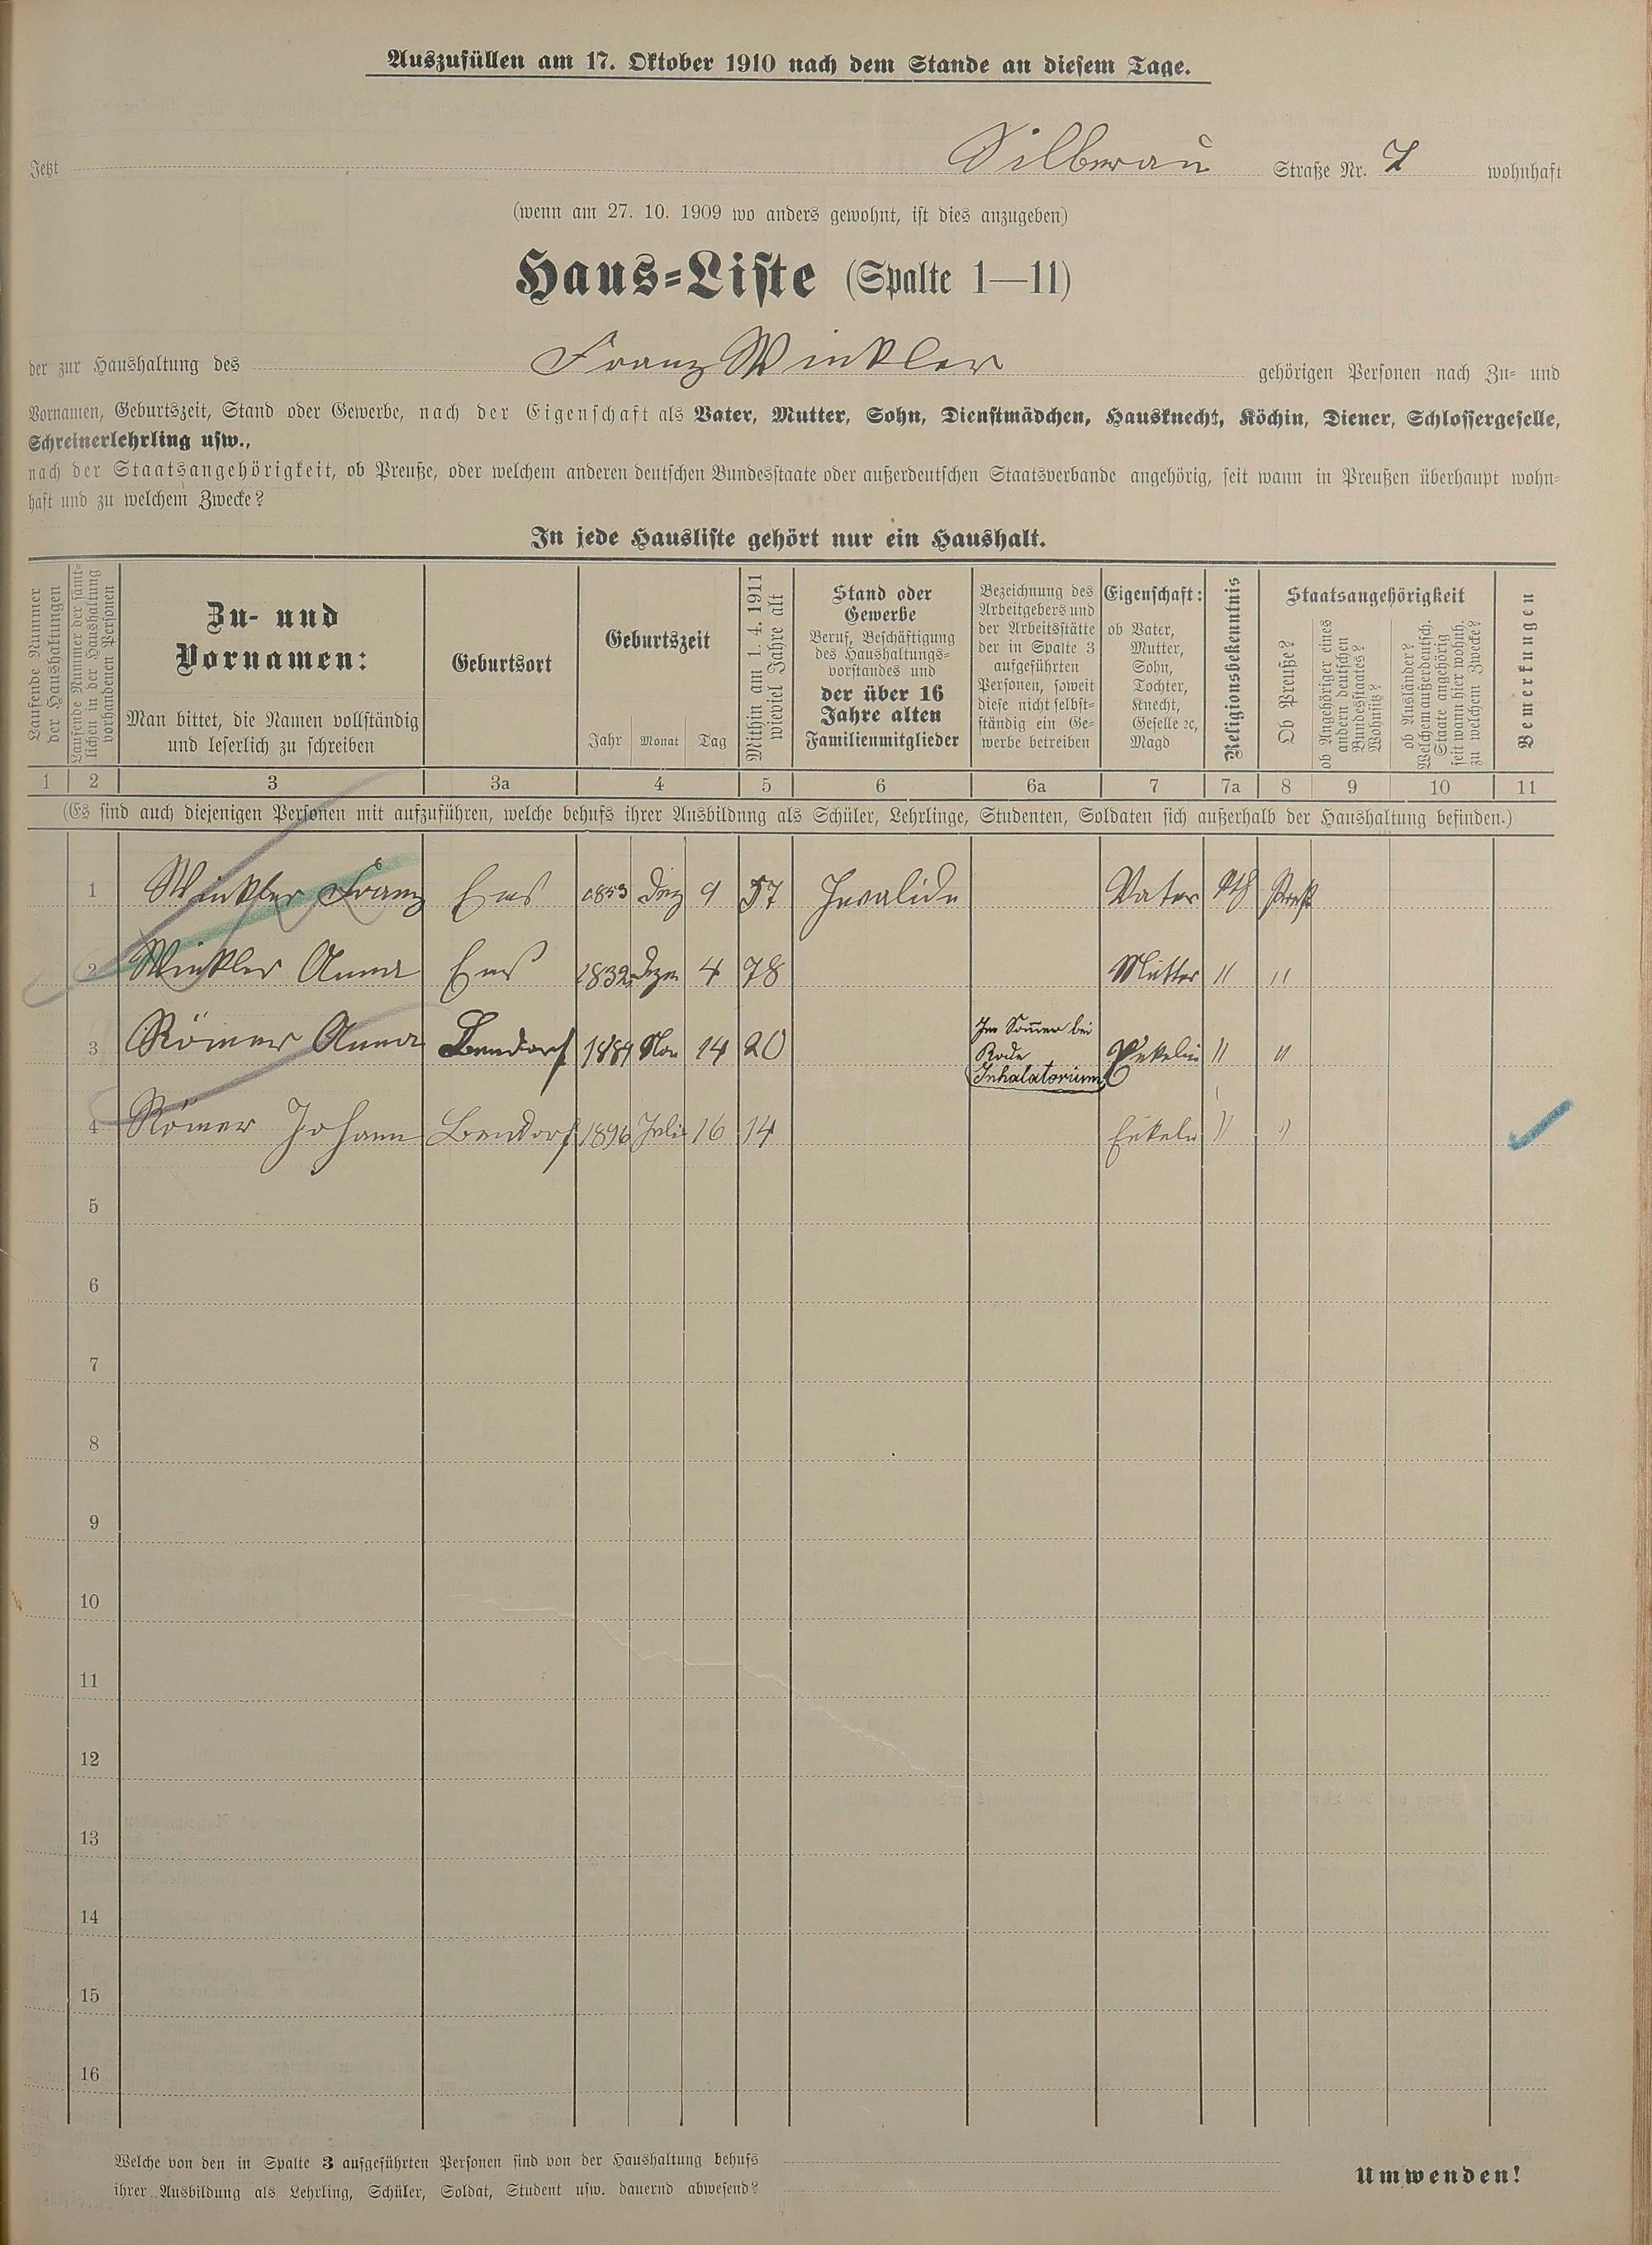 Auszufüllen am 17. Oktober 1910 nach dem Stande an diesem Tage.
Jetzt Silberau Straße Nr. 7 wohnhaft
(wenn am 27. 10. 1909 wo anders gewohnt, ist dies anzugeben)
Haus-Liste (Spalte 1—11)
der zur Haushaltung des Franz Winkler gehörigen Personen nach Zu- und
Vornamen, Geburtszeit, Stand oder Gewerbe, nach der Eigenschaft als Vater, Mutter, Sohn, Dienstmädchen, Hausknecht, Köchin, Diener, Schlossergeselle,
Schreinerlehrling usw.,
nach der Staatsangehörigkeit, ob Preuße, oder welchem anderen deutschen Bundesstaate oder außerdeutschen Staatsverbande angehörig, seit wann in Preußen überhaupt wohn-
haft und zu welchem Zwecke?
In jede Hausliste gehört nur ein Haushalt.
Laufende Nummer
der Haushaltungen
Laufende Nummer der sämt-
lichen in der Haushaltung
vorhandenen Personen
Zu- und
Vornamen:
Man bittet, die Namen vollständig
und leserlich zu schreiben
Geburtsort
Geburtszeit
Jahr Monat Tag
Mithin am 1. 4. 1911
wieviel Jahre alt
Stand oder
Gewerbe
Beruf, Beschäftigung
des Haushaltungs-
vorstandes und
der über 16
Jahre alten
Familienmitglieder
Bezeichnung des
Arbeitgebers und
der Arbeitsstätte
der in Spalte 3
aufgeführten
Personen, soweit
diese nicht selbst-
ständig ein Ge-
werbe betreiben
Eigenschaft:
ob Vater,
Mutter,
Sohn,
Tochter,
Knecht,
Geselle ꝛc,
Magd
Religionsbekenntnis
Staatsangehörigkeit
Ob Preuße?
ob Angehöriger eines
andern deutschen
Bundesstaates?
Wohnsitz?
ob Ausländer?
Welchem außerdeutsch.
Staate angehörig
seit wann hier wohnh.
zu welchem Zwecke?
Bemerkungen
1 2 3 3a 4 5 6 6a 7 7a 8 9 10 11
(Es sind auch diejenigen Personen mit aufzuführen, welche behufs ihrer Ausbildung als Schüler, Lehrlinge, Studenten, Soldaten sich außerhalb der Haushaltung befinden.)
1 Winkler Franz Ems 1853 Dez 9 57 Invalide Vater Kth Preuß
2 Winkler Anna Ems 1832 Dezm 4 78 Mutter " "
Im Sommer bei
3 Römer Anna Bendorf Nov 14 20 Rode Enkelin " "
Inhalatorium
4 Römer Johann Bendorf 1896 Juli 16 14 Enkeln " "
5
6
7
8
9
10
11
12
13
14
15
16
Welche von den in Spalte 3 aufgeführten Personen sind von der Haushaltung behufs
ihrer Ausbildung als Lehrling, Schüler, Soldat, Student usw. dauernd abwesend?
Umwenden!